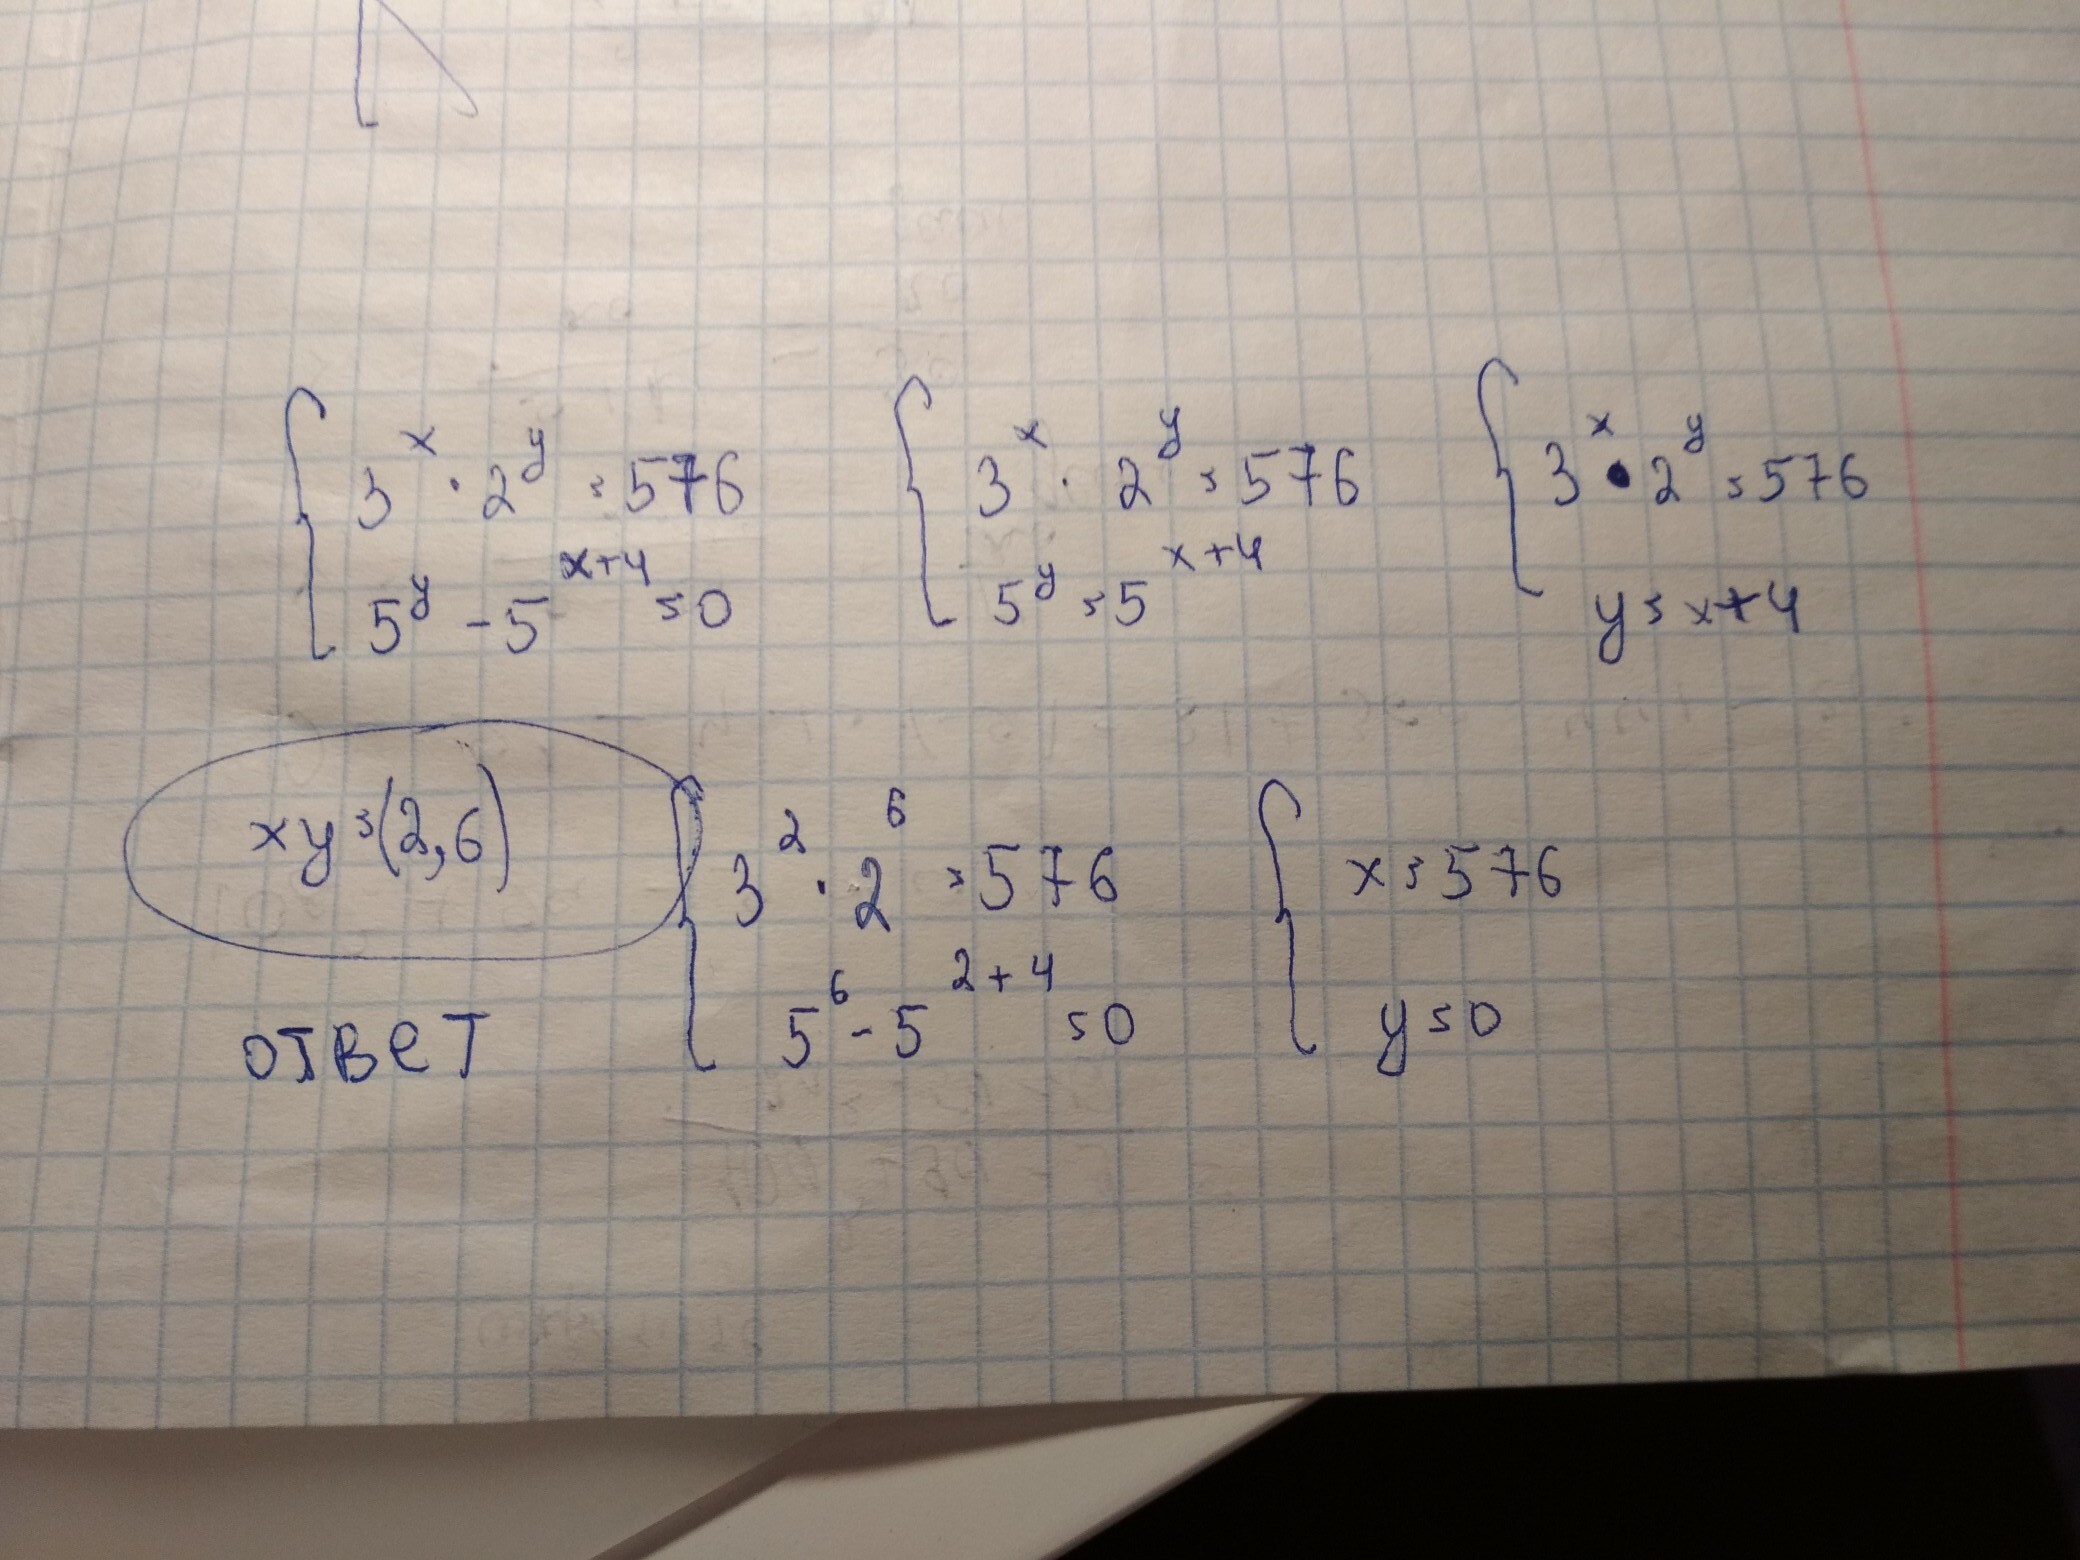 3^x · 2^y = 576
5^y - 5^{x+4} = 0
3^x · 2^y = 576
5^y = 5^{x+4}
3^x · 2^y = 576
y = x+4
xy = (2,6)
ответ
3^2 · 2^6 = 576
5^6 - 5^{2+4} = 0
x = 576
y = 0